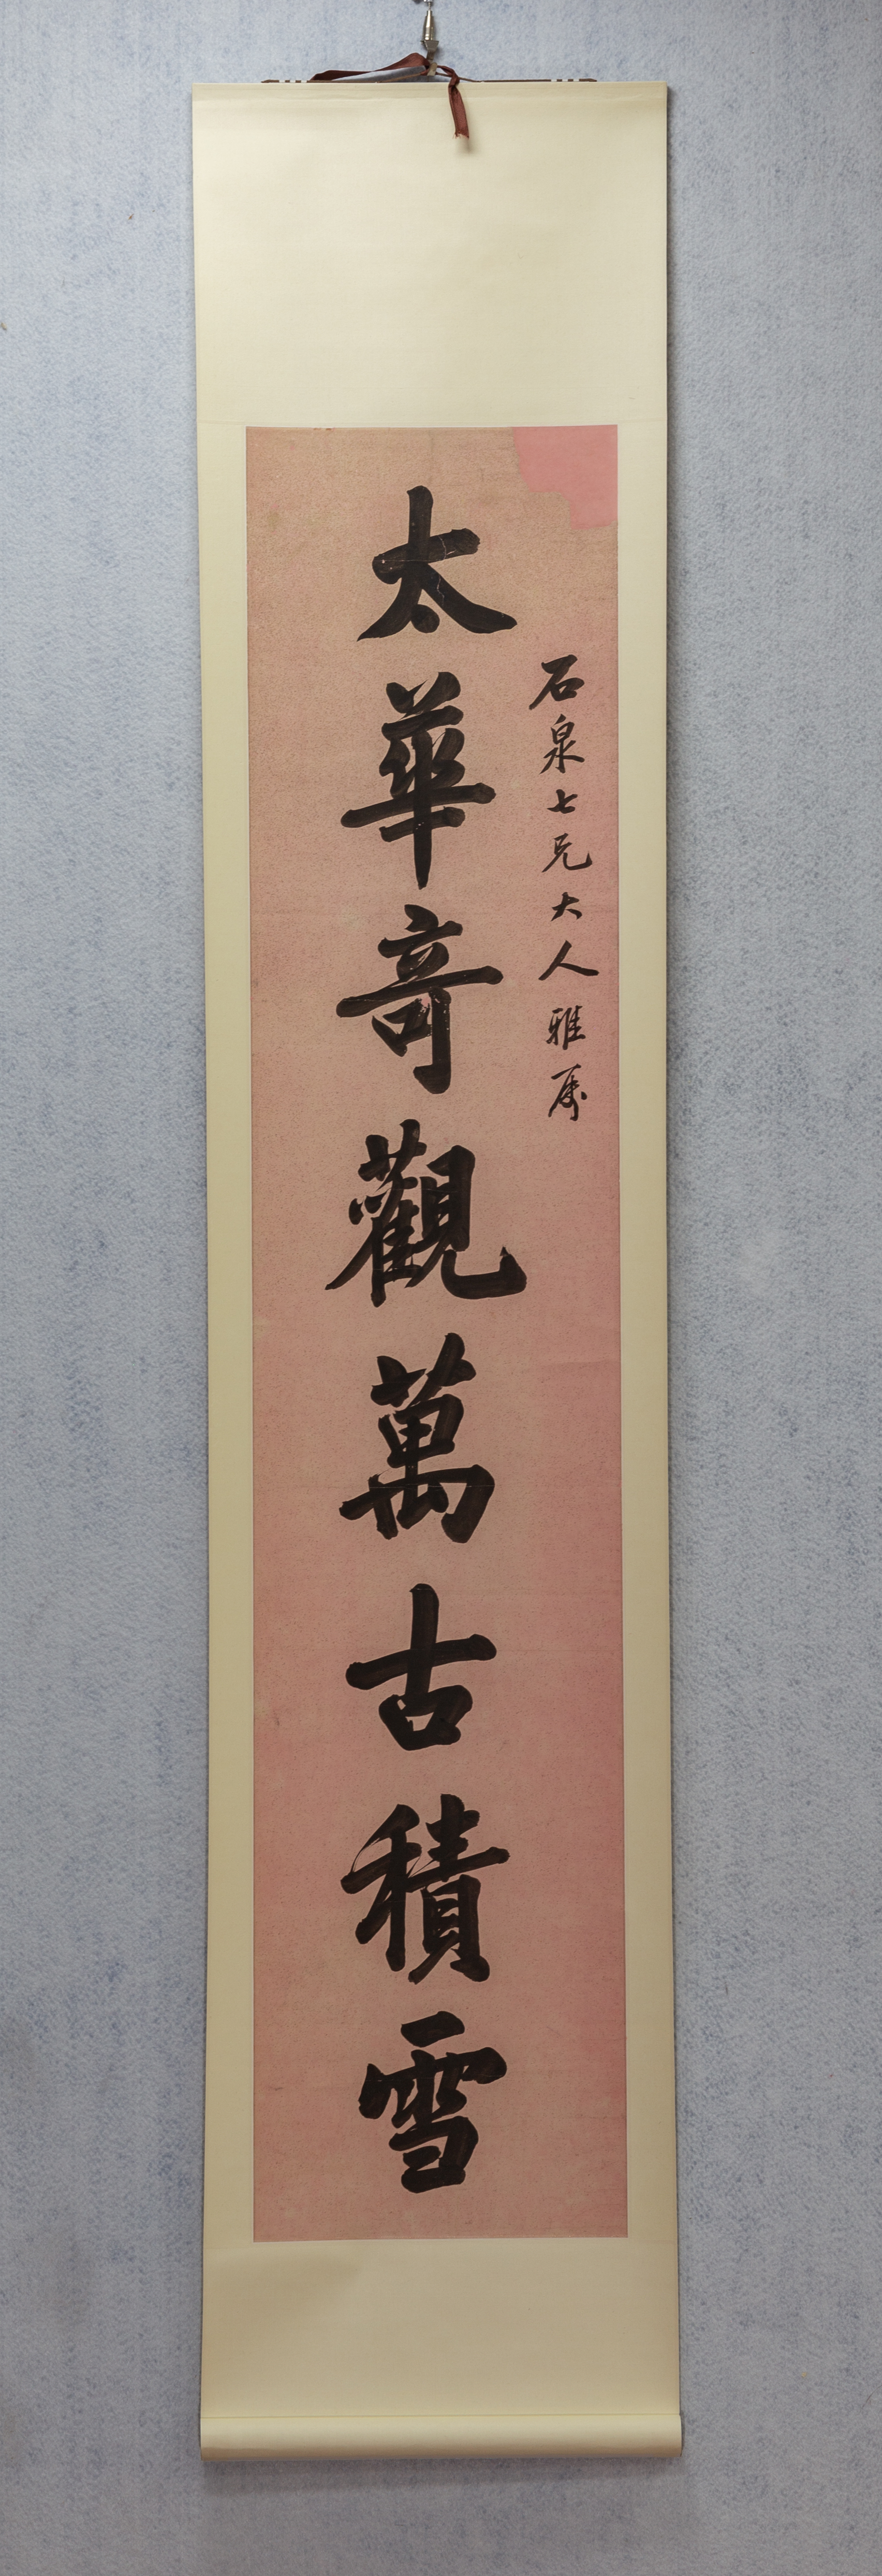 石泉七兄大人雅属
太華奇觀萬古積雪